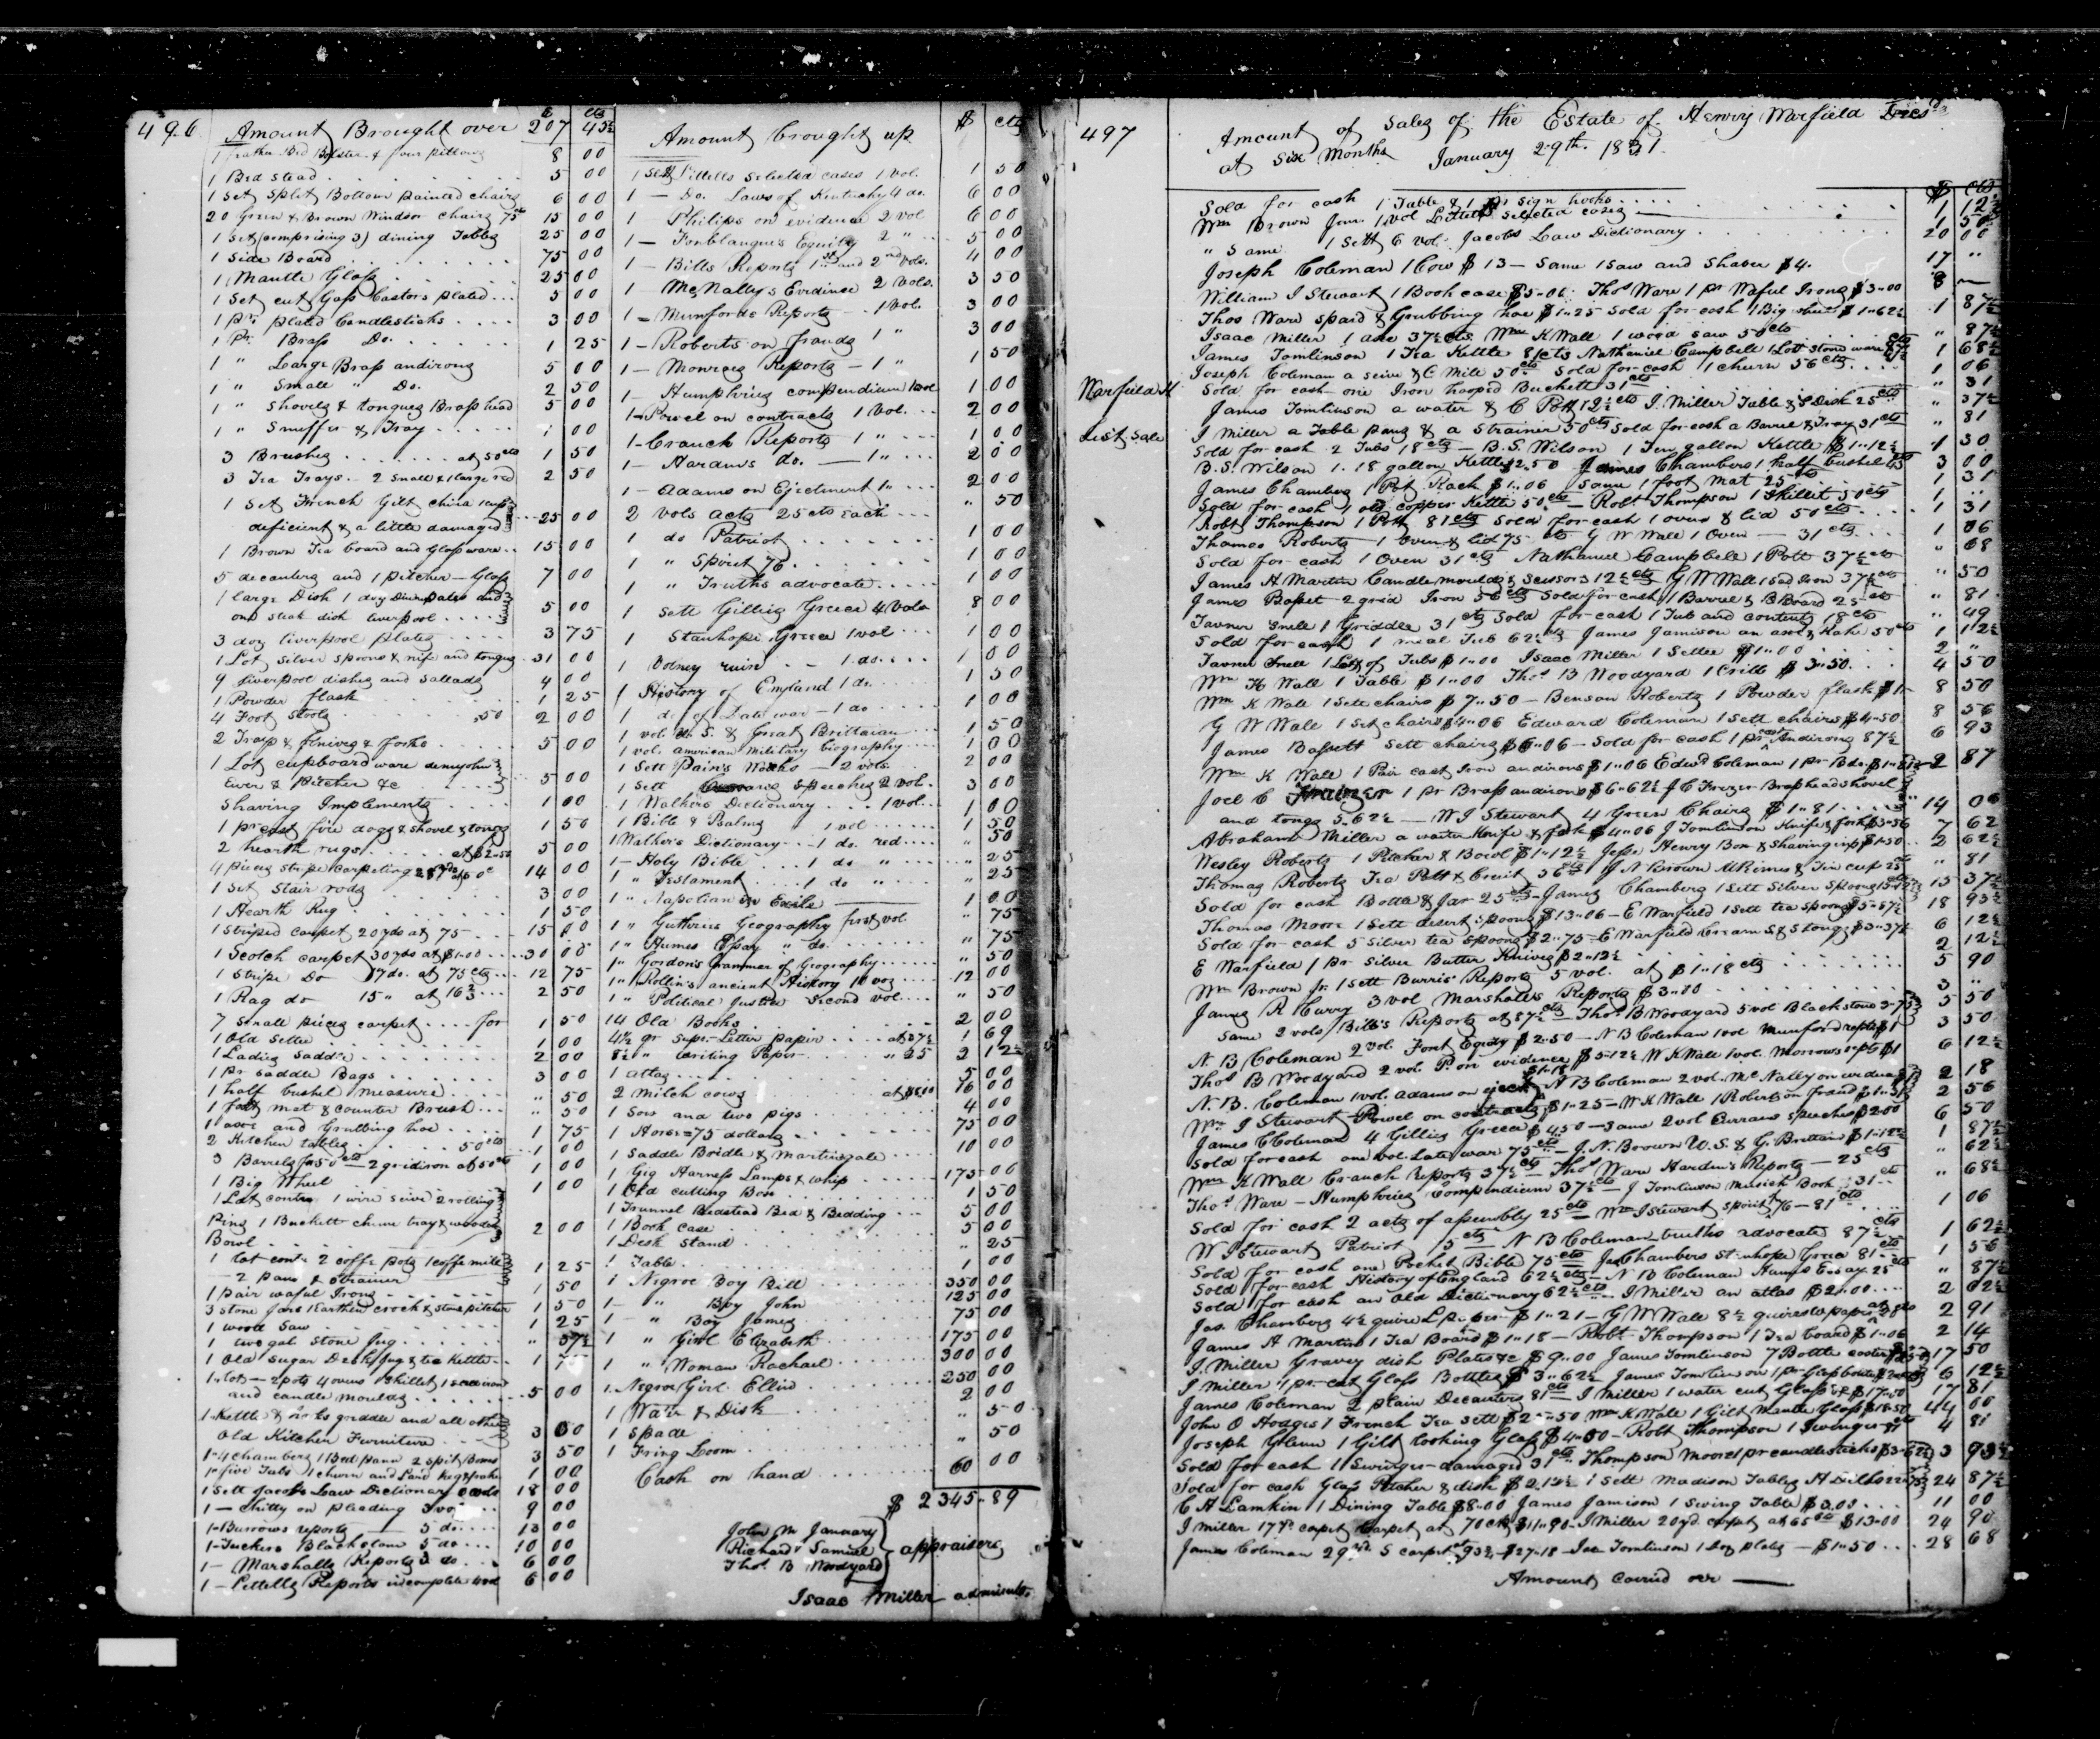 496
Amount Brought over 207 43½
1 feather Bed Bolster & four pillows 8 00
1 Bed stead 5 00
1 Set Split Bottom painted chairs 6 00
20 Green & Brown Windsor chairs 75cts 15 00
1 Set (comprising 3) dining Tables 25 00
1 Side Board 75 00
1 Mantle Glass 25 00
1 Set cut Glass Castors plated 5 00
1 pr. plated Candlesticks 3 00
1 Pr. Brass Do. 1 25
1 " Large Brass andirons 5 00
1 " Small " Do. 2 50
1 " Shovels & tongues Brass head 5 00
1 " Snuffer & Tray 1 00
3 Brushes at 50cts 1 50
3 Tea Trays. 2 small & 1 large red 2 50
1 Set French Gilt china 1 cup
deficient & a little damaged 25 00
1 Brown Tea board and Glass ware 15 00
5 decanters and 1 pitcher - Glass 7 00
1 large Dish 1 doz Dining plates and
one steak dish liverpool 5 00
3 doz liverpool plates 3 75
1 Lot silver spoons & nife and tongus 31 00
9 liverpool dishes and Sallads 4 00
1 Powder flask 1 25
4 Foot Stools 50 2 00
2 Trays & knives & forks 5 00
1 Lot cupboard ware demijohn
Ewer & pitcher &c 5 00
Shaving Implements 1 00
1 pr cast fire dogs & shovel & tongs 1 50
2 hearth rugs at $2.50 5 00
4 pieces stripe carpeting 28 yds at 50c 14 00
1 Set Stair rods 3 00
1 Hearth Rug 1 50
1 Striped carpet 20 yds at 75 15 00
1 Scotch carpet 30 yds at $1.00 30 00
1 Stripe Do 17 do. at 75 cts 12 75
1 Rag do 15 " at 16⅔ 2 50
7 Small pieces carpet for 1 50
1 Old Settee 1 00
1 Ladies Saddle 2 00
1 Pr Saddle Bags 3 00
1 half bushel measure " 50
1 foot mat & counter Brush " 50
1 axe and Grubbing hoe 1 75
2 Kitchen tables 50cts 1 00
3 Barrels for 50cts - 2 gridiron at 50cts 1 00
1 Big Wheel 1 00
1 Lot contns. 1 wire seive 2 rolling
Pins 1 Buckett churn tray & wooden
Bowl 2 00
1 lot cont. 2 coffe pots 1 coffe mill
2 pans & strainer 1 25
1 pair waful Irons 1 50
3 stone jars 1 Earthen crock & stone pitcher 1 50
1 wood Saw 1 25
1 two gal stone Jug " 37½
1 Old Sugar Desk, Jug & tea Kettle 1 75
1 lot - 2 pots 4 ovens 1 skillet 1 sadiron
and candle moulds 5 00
1 Kettle & hooks griddle and all other
Old Kitchen Furniture 3 00
1 - 4 chambers 1 Bed pann 2 spit Boxes 3 50
1 - five Tubs 1 churn and Lard keg & 1 rake 1 00
1 Sett Jacobs Law Dictionary 6 vols 18 00
1 - Chitty on pleading 3 vo 9 00
1 - Burrows reports 5 do. 13 00
1 - Tuckers Blackstone 5 do 10 00
1 - Marshalls Reports 3 do. 6 00
1 - Littells Reports incomplete 4 vol 6 00
Amount brought up $ cts
1 Sett Littells Selected cases 1 vol. 1 50
1 - Do. Laws of Kentucky 4 do. 6 00
1 Philips on evidence 2 vol 6 00
1 - Fonblanque's Equity 2 " 5 00
1 - Bills Reports 1st and 2nd vols. 4 00
1 McNally's Evidence 2 vols. 3 50
1 - Munfords Reports 1 Vol. 3 00
1 - Roberts on frauds 1 " 3 00
1 - Monroes Reports - 1 " 1 50
1 - Humphries compendium 1 vol 1 00
1 - Powel on contracts 1 Vol. 2 00
1 - Cranch Reports 1 " 1 00
1 - Hardins do. - 1 " 2 00
1 - Adams on Ejectment 1 " 2 00
2 vols acts 25 cts each " 50
1 do Patriot 1 00
1 " Spirit 76 1 00
1 " Truths advocate 1 00
1 Sett Gillies Greece 4 Vols 8 00
1 Stanhope Greece 1 vol 1 00
1 Volney ruins 1 do. 1 00
1 History of England 1 do. 1 50
1 do. of Late war - 1 do 1 00
1 vol. U. S. & Great Brittain 1 50
1 vol. american Military biography 1 00
1 Sett Pain's Works - 2 vols 2 00
1 Sett Currans Speeches 2 vol. 3 00
1 Walkers Dictionary 1 vol. 1 00
1 Bible & Psalms 1 vol 1 50
1 Walker's Dictionary - 1 do. red " 50
1 - Holy Bible 1 do " " 25
1 " Testament 1 do " " 25
1 " Napolian in Exile 1 00
1 " Guthries Geography first vol " 75
1 " Humes Essay " do. " 75
1 " Gordon's Grammer of Geography " 50
1 " Rollin's ancient History 10 vos 12 00
1 " Political Justice Second vol " 50
14 Old Books 2 00
4½ qr Supr. Letter paper at 37½ 1 69
8½ " writing Paper " 25 2 12½
1 atlas 5 00
2 Milch cows at $8.00 16 00
1 Sow and two pigs 4 00
1 Horse = 75 dollars 75 00
1 Saddle Bridle & Martingale 10 00
1 Gig Harness Lamps & whip 175 00
1 Old cutting Box 1 50
1 Trunnel Bedstead Bed & Bedding 5 00
1 Book Case 5 00
1 Desk Stand " 25
1 Table 1 00
1 Negroe Boy Bill 350 00
1 - " Boy John 125 00
1 " Boy James 75 00
1 " Girl Elizabeth 175 00
1 " Woman Rachael 300 00
1. Negroe Girl Ellin 250 00
1 Water & Dish 2 00
1 Spade " 50
1 Fring Loom " 50
Cash on hand 60 00
$ 2345.89
John M January
Richard Samuel
Thos. B Woodyard
appraisers
Isaac Miller adminstr.
497
Amount of Sales of the Estate of Henry Warfield Decsd
at Six Months January 29th. 1831.
Warfield H
List Sale
$ cts
Sold for cash 1 Table & 1 pr Sign hooks 1 12½
Wm Brown Junr. 1 vol Littells Selected cases 1 50
" Same 1 Sett 6 vol. Jacobs Law Dictionary 20 00
Joseph Coleman 1 Cow $13 - Same 1 saw and Shaver $4. 17 "
William I Stewart 1 Book case $5.06 Thos Ware 1 pr Waful Irons $3.00 8
Thos Ware spaid & Grubbing hoe $1.25 - Sold for cash 1 Big wheel $1.62½ 1 87½
Isaac Miller 1 axe 37½cts Wm K Wall 1 wood saw 50cts " 87½
James Tomlinson 1 Tea Kettle 81cts Nathaniel Campbell 1 Lott stone ware 87½ 1 68½
Joseph Coleman a seive & C Mill 50cts Sold for cash 1 churn 56cts 1 06
Sold for cash one Iron hooped Buckett 31cts " 31
James Tomlinson a water & C Pott 12½cts I. Miller Table & S Dish 25cts " 37½
I Miller a Table pans & a Strainer 50cts Sold for cash a Barrel & Tray 31cts " 81
Sold for cash 2 Tubs 18cts - B. S. Wilson 1 Ten gallon Kettle $1.12½ 1 30
B. S. Wilson 1. 18 gallon Kettle $2.50 James Chambers 1 half bushel 3 00
James Chambers 1 Pot Rack $1.06 Same 1 foot mat 25cts 1 31
Sold for cash 1 old copper Kettle 50cts - Robt Thompson 1 Skillet 50cts 1 "
Robt Thompson 1 Pott 81cts Sold for cash 1 oven & lid 50cts 1 31
Thomas Roberts 1 Oven & lid 75 cts G W Wall 1 Oven - 31cts 1 06
Sold for cash 1 Oven 31cts Nathaniel Campbell 1 Pott 37½cts " 68
James H Martin Candle moulds & Scissors 12½cts G W Wall 1 Sad Iron 37½cts " 50
James Basset 2 grid Iron 56cts Sold for cash 1 Barrel & B Board 25cts " 81
Tavner Snell 1 Griddle 31cts Sold for cash 1 Tub and contents 18cts " 49
Sold for cash 1 meal Tub 62½cts James Jamison an axe & Rake 50cts 1 12½
Tavner Snell 1 Lott of Tubs $1.00 Isaac Miller 1 Settee $1.00 2 "
Wm K Wall 1 Table $1.00 Thos. B Woodyard 1 Cribb $3.50 4 50
Wm K Wall 1 Sett chairs $7.50 - Benson Roberts 1 Powder flask $1 8 50
G W Wall 1 Set chairs $4.06 Edward Coleman 1 Sett chairs $4.50 8 56
James Bassett Sett chairs $6.06 - Sold for cash 1 pr cast Andirons 87½ 6 93
Wm K Wall 1 Pair cast Iron andirons $1.06 Edwd Coleman 1 pr Bds. 2 87
Joel C Frazer 1 pr Brass andirons $6.62½ J C Frazer Brass head shovel
and tongs 5.62½ - W I Stewart 4 Green Chairs $1.81 14 06
Abraham Miller a waiter Knife & fork $4.06 J Tomlinson Knife & fork $3.56 7 62
Wesley Roberts 1 Pitcher & Bowl $1.12½ Jesse Henry Box & Shaving imp $1.50 2 62½
Thomas Roberts Tea Pott & Cruit 56cts J N Brown & Tin cup 25cts " 81
Sold for cash Bottle & Jar 25cts - James Chambers 1 Sett Silver Spoons 15 37½
Thomas Moore 1 Sett desert spoons $13.06 - E Warfield 1 Sett tea spoons $5.87½ 18 93½
Sold for cash 5 silver tea spoons $2.75 - E Warfield Cream S & S tongs $3.37½ 6 12½
E Warfield 1 Pr. Silver Butter Knives $2.12½ 2 12½
Wm Brown Jr. 1 Sett Burris' Reports 5 vol. at $1.18cts 5 90
James R Curry 3 vol Marshalls Reports $3.00 3 "
Same 2 vols Bills's Reports at 87½cts - Thos. B Woodyard 5 vol Blackstone 3.75 5 50
N. B. Coleman 2 vol. Font Equity $2.50 - N B Coleman 1 vol Munford repts $1 3 50
Thos B Woodyard 2 vol. P. on evidence $5.12½ W K Wall 1 vol. Monrows repts $1 6 12½
N. B. Coleman 1 vol. adams on eject $1.18 N B Coleman 2 vol. McNally on evidence 2 18
Wm I Stewart Powel on contracts $1.25 - W K Wall 1 Roberts on fraud $1.31 2 56
James C Coleman 4 Gillies Greece $4.50 - Same 2 vol Currans speeches $2.00 6 50
Sold for cash one vol. Late war 75cts - J. N. Brown U. S. & G. Brittain $1.12½ 1 87½
Wm K Wall Cranch reports 37½cts - Thos Ware Hardin's Reports - 25cts " 62½
Thos. Ware - Humphries Compendium 37½cts - J Tomlinson Musick Book 31cts " 68½
Sold for cash 2 acts of assembly 25cts - Wm I Stewart spirit 76 - 81cts 1 06
W I Stewart Patriot 75cts - N B Coleman truths advocate 87½cts 1 62½
Sold for cash one Pocket Bible 75cts Jas Chambers Stanhope Greece 81cts 1 56
Sold for cash History of England 62½cts - N B Coleman Humes Essay 25cts " 87½
Sold for cash an Old Dictionary 62½cts - I Miller an atlas $2.00 2 62½
Jas. Chambers 4½ quires L. paper $1.21 - G W Wall 8½ quires do paper at 20cts 2 91
James H Martin 1 Tea Board $1.18 - Robt. Thompson 1 Tea board $1.06 2 14
I. Miller Gravey dish Plates &c $9.00 James Tomlinson 7 Bottle castor 17 50
I Miller 1 pr. cut Glass Bottles $3.62½ James Tomlinson 1 pr Glass bottles 6 12½
James Coleman 2 plain Decanters 81cts I Miller 1 water cut Glass $17.00 17 81
John O Hodges 1 French Tea Sett $25.50 Wm K Wall 1 Gilt Mantle Glass $18.50 44 00
Joseph Glenn 1 Gilt looking Glass $4.00 - Robt Thompson 1 Swinger 81cts 4 81
Sold for cash 1 Swinger - damaged 31cts Thompson Moore 1 pr candlesticks $3.62½ 3 93½
Sold for cash Glass Pitcher & dish $2.12½ 1 Sett Madison Tables H Dills 22.75 24 87½
C A Lamkin 1 Dining Table $8.00 James Jamison 1 Swing Table $3.00 11 00
I Miller 17 yd. carpet Carpet at 70 cts $11.90 - I Miller 20 yd. carpet at 65cts $13.00 24 90
James Coleman 29 yds. S carpet at 93¾ $27.18 - Jas Tomlinson 1 Doz plates - $1.50 28 68
Amount carried over